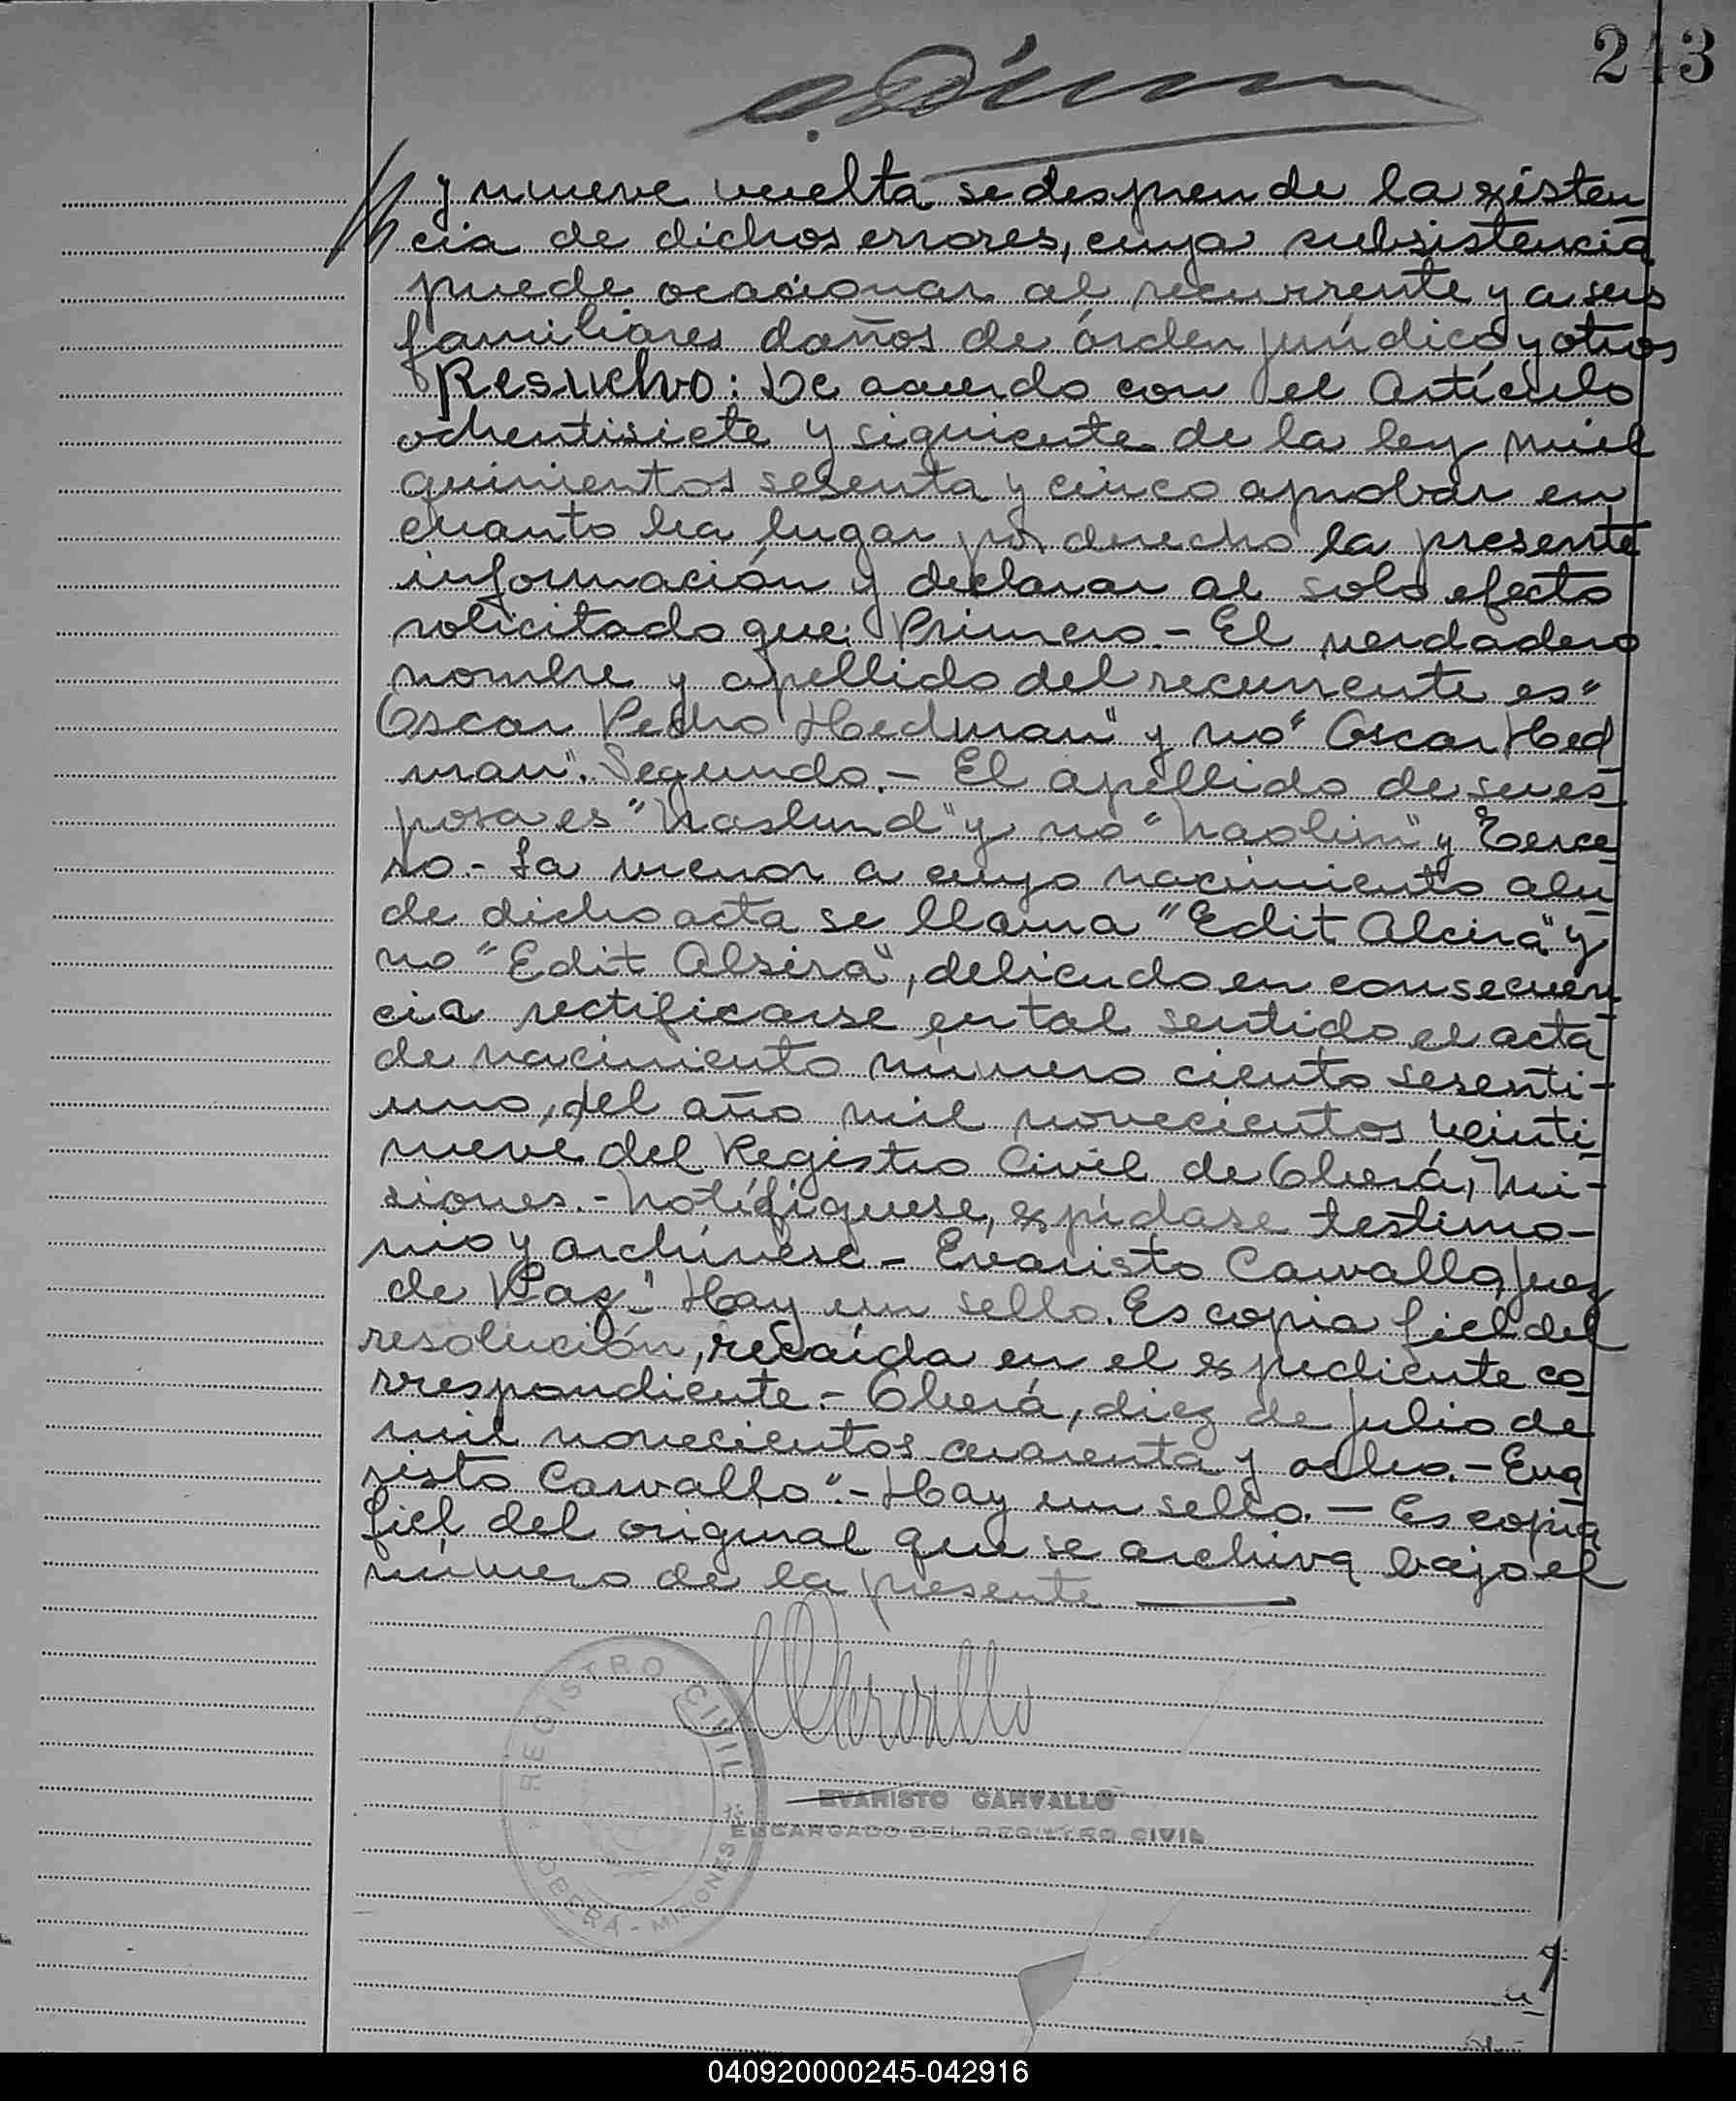 243
y nueve vuelta se desprende la existen
cia de dichos errores, cuya subsistencia
puede ocasionar al recurrente y a sus
familiares daños de órden jurídico y otros
Resuelvo: De acuerdo con el Artículo
ochentisiete y siguiente de la ley mil
quinientos sesenta y cinco aprobar en
cuanto ha lugar por derecho la presente
información y declarar al solo efecto
solicitado que: Primero.- El verdadero
nombre y apellido del recurrente es "
Oscar Pedro Hedman" y no "Oscar Hed
man". Segundo.- El apellido de su es
posa es "Naslund" y no "Naolin" y Terce
ro.- La menor a cuyo nacimiento alu
de dicho acta se llama "Edit Alcira" y
no "Edit Alsira", debiendo en consecuen
cia rectificarse en tal sentido el acta
de nacimiento número ciento sesenti-
uno, del año mil novecientos veinti
nueve del Registro Civil de Oberá, Mi-
siones.- Notifíquese, expídase testimo-
nio y archívese - Evaristo Carvallo, Juez
de Paz". Hay un sello. Es copia fiel del
resolución, recaída en el expediente co
rrespondiente.- Oberá, diez de julio de
mil novecientos cuarenta y ocho.- Eva
risto Carvallo".- Hay un sello.- Es copia
fiel del original que se archiva bajo el
número de la presente
REGISTRO CIVIL
OBERÁ - MISIONES
EVARISTO CARVALLO
ENCARGADO DEL REGISTRO CIVIL
040920000245-042916